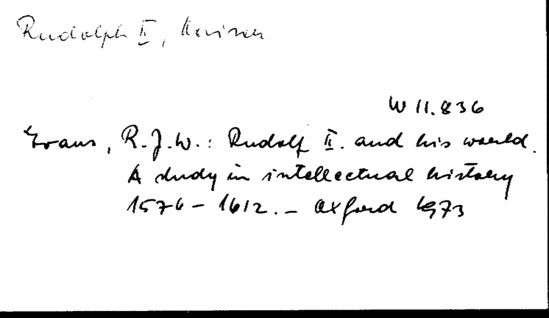 Rudolph II, Kaiser
W 11.836
Evans, R.J.W.: Rudolf II. and his world.
A study in intellectual history
1576 - 1612. - Oxford 1973